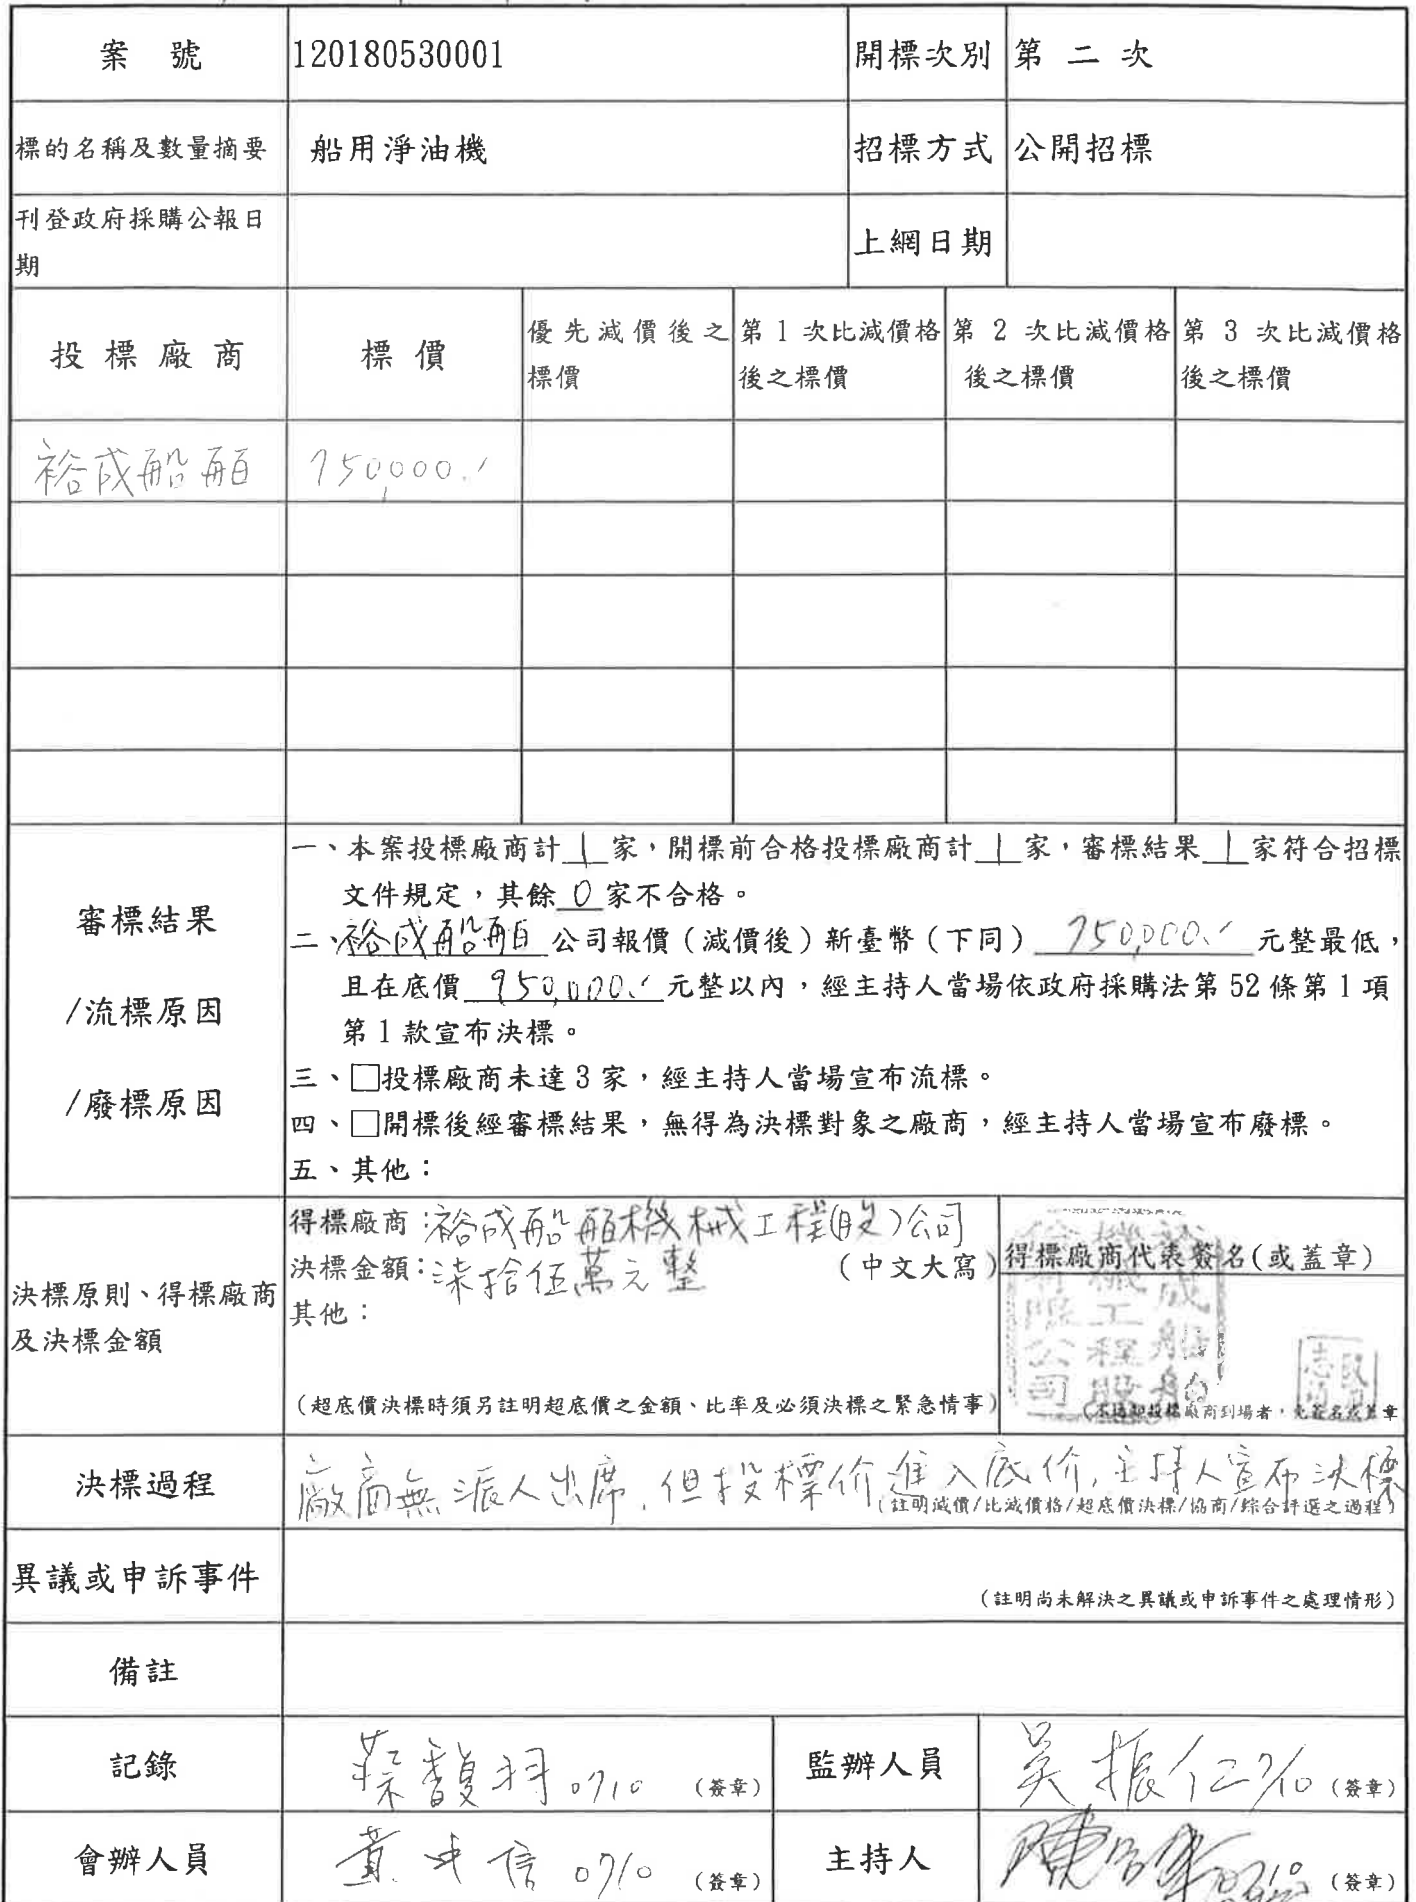 案號 120180530001 開標次別 第二次
標的名稱及數量摘要 船用淨油機 招標方式 公開招標
刊登政府採購公報日
期
上網日期
投標廠商 標價
優先減價後之
標價
第1次比減價格
後之標價
第2次比減價格
後之標價
第3次比減價格
後之標價
裕成船舶 750,000.
一、本案投標廠商計 1 家,開標前合格投標廠商計 1 家,審標結果 1 家符合招標
文件規定,其餘 0 家不合格。
審標結果
/流標原因
/廢標原因
二、裕成船舶公司報價(減價後)新臺幣(下同) 750,000. 元整最低,
且在底價 950,000. 元整以內,經主持人當場依政府採購法第52條第1項
第1款宣布決標。
三、□投標廠商未達3家,經主持人當場宣布流標。
四、□開標後經審標結果,無得為決標對象之廠商,經主持人當場宣布廢標。
五、其他:
決標原則、得標廠商
及決標金額
得標廠商:裕成船舶機械工程(股)公司
決標金額:柒拾伍萬元整 (中文大寫)
其他:
(超底價決標時須另註明超底價之金額、比率及必須決標之緊急情事)
得標廠商代表簽名(或蓋章)
裕成船舶
機械工程股
份有限公司
決標過程 廠商無派人出席,但投標价進入底价,主持人宣布決標
(註明減價/比減價格/超底價決標/協商/綜合評選之過程)
異議或申訴事件
(註明尚未解決之異議或申訴事件之處理情形)
備註
記錄 蔡馥羽 0710 (簽章) 監辦人員 吳振仁 7/10 (簽章)
會辦人員 黃中信 0710 (簽章) 主持人 (簽章)